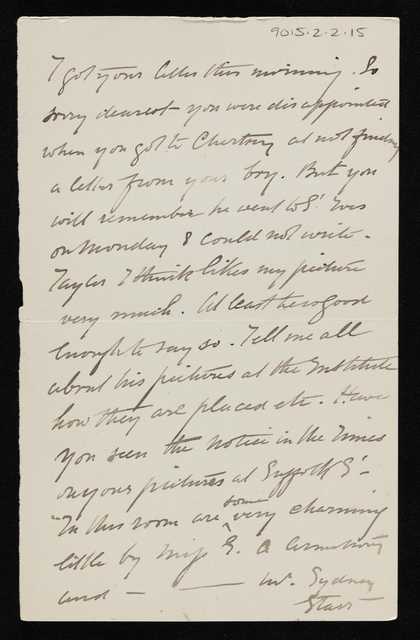 9015.2.2.15
I got your letter this morning. So
sorry dearest you were disappointed
when you got to Chertsey at not finding
a letter from your boy. But you
will remember he went to St Ives
on Monday & could not write -
Taylor I think likes my picture
very much. At least he is good
enough to say so - Tell me all
about his pictures at the Institute
how they are placed etc. Have
you seen the notice in the Times
on your pictures at Suffolk St -
"In this room are some very charming
little by Miss E. A Armstrong
and - — Mr. Sydney
Starr